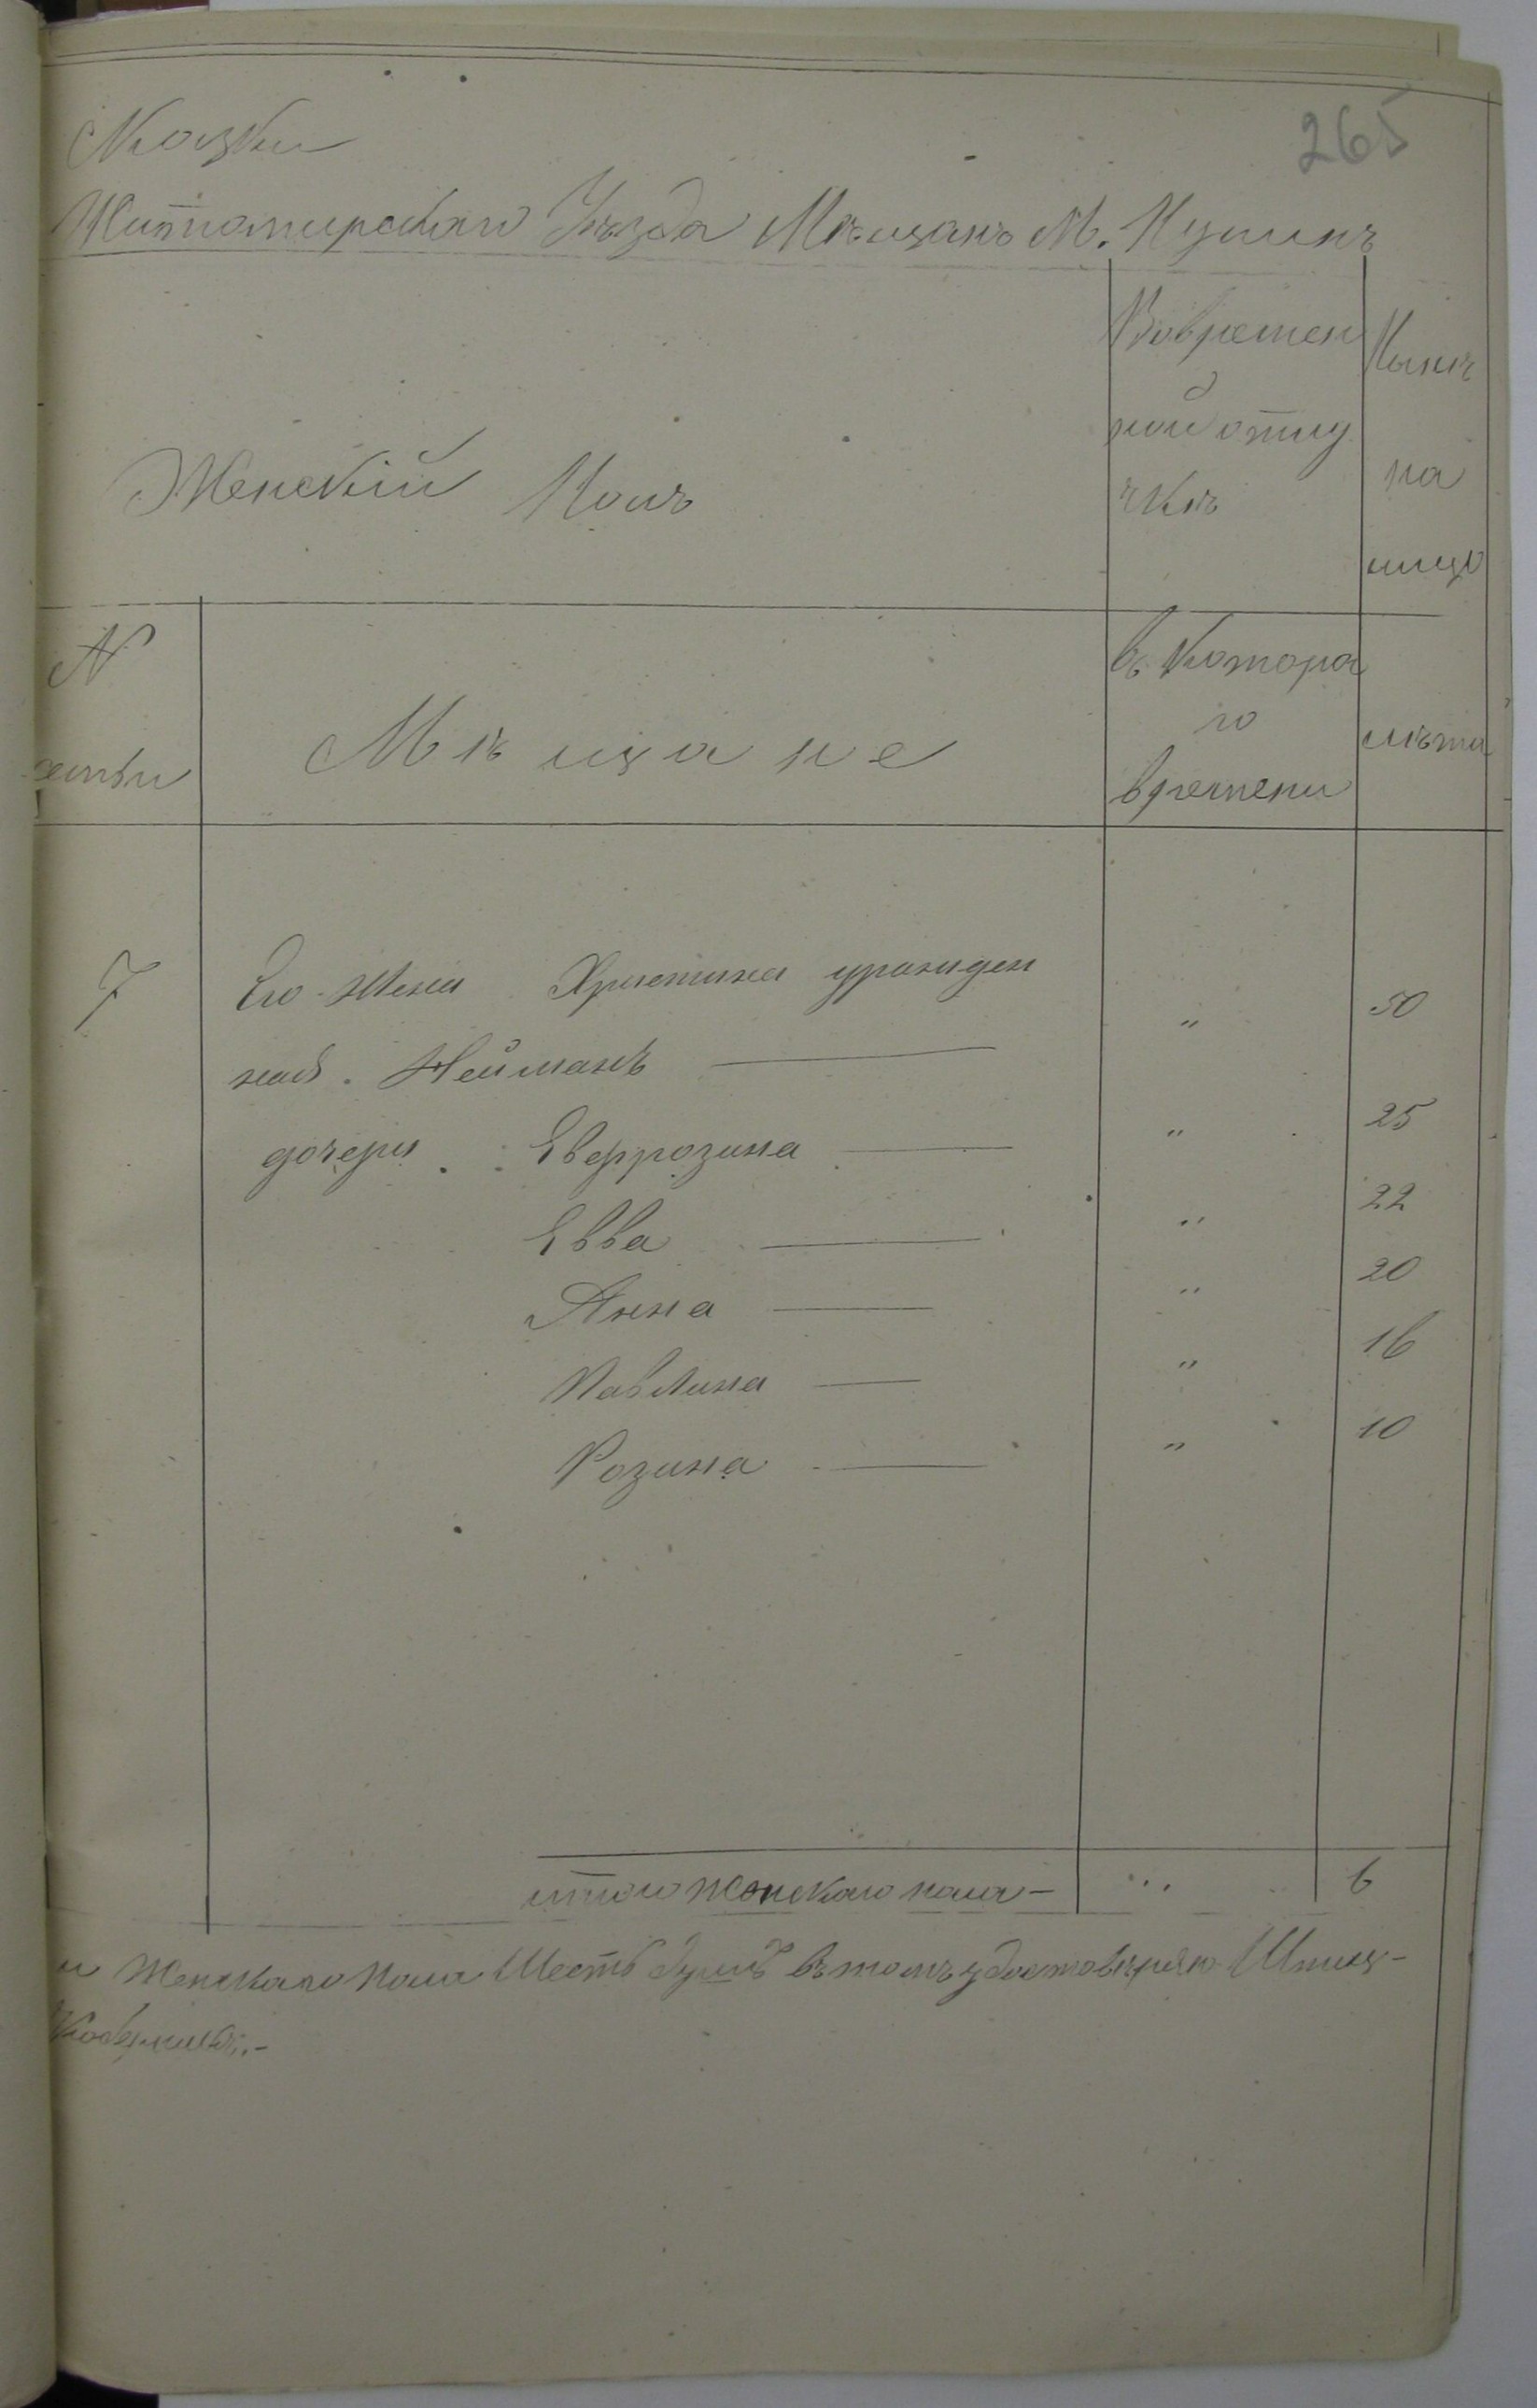 265
Сказки
Житомирскаго Уѣзда Мѣщанъ М. Пулинъ
Женскій Полъ
Вовремен
ной отлу
чкѣ
Нынѣ
на
лицо
N
семьи
Мѣщане
въ котора
го
времени
лѣта
7
Его жена Христина урожден
ная Нейманъ — " 50
дочери Евфрозина — " 25
Евва — " 22
Анна — " 20
Павлина — " 16
Розина — " 10
итого женскаго пола — " 6
и женскаго пола Шесть душъ въ томъ удостовѣряю